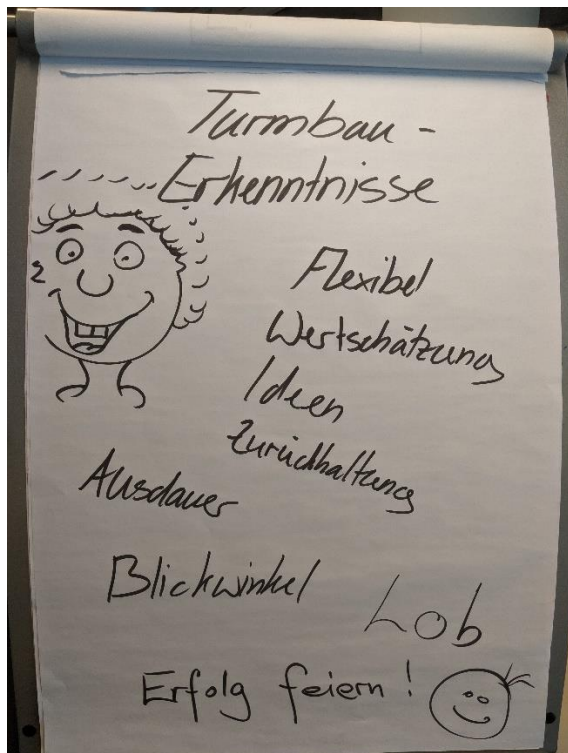 Turmbau -
Erkenntnisse
Flexibel
Wertschätzung
Ideen
Zurückhaltung
Ausdauer
Blickwinkel
Lob
Erfolg feiern !